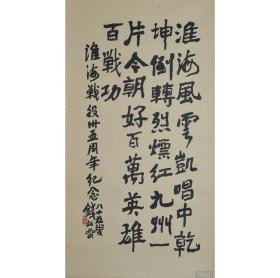 淮海風雲凱唱中乾
坤倒轉烈熛紅九州一
片今朝好百萬英雄
百戰功
淮海戰役卅五周年紀念
八十五叟
錢松喦